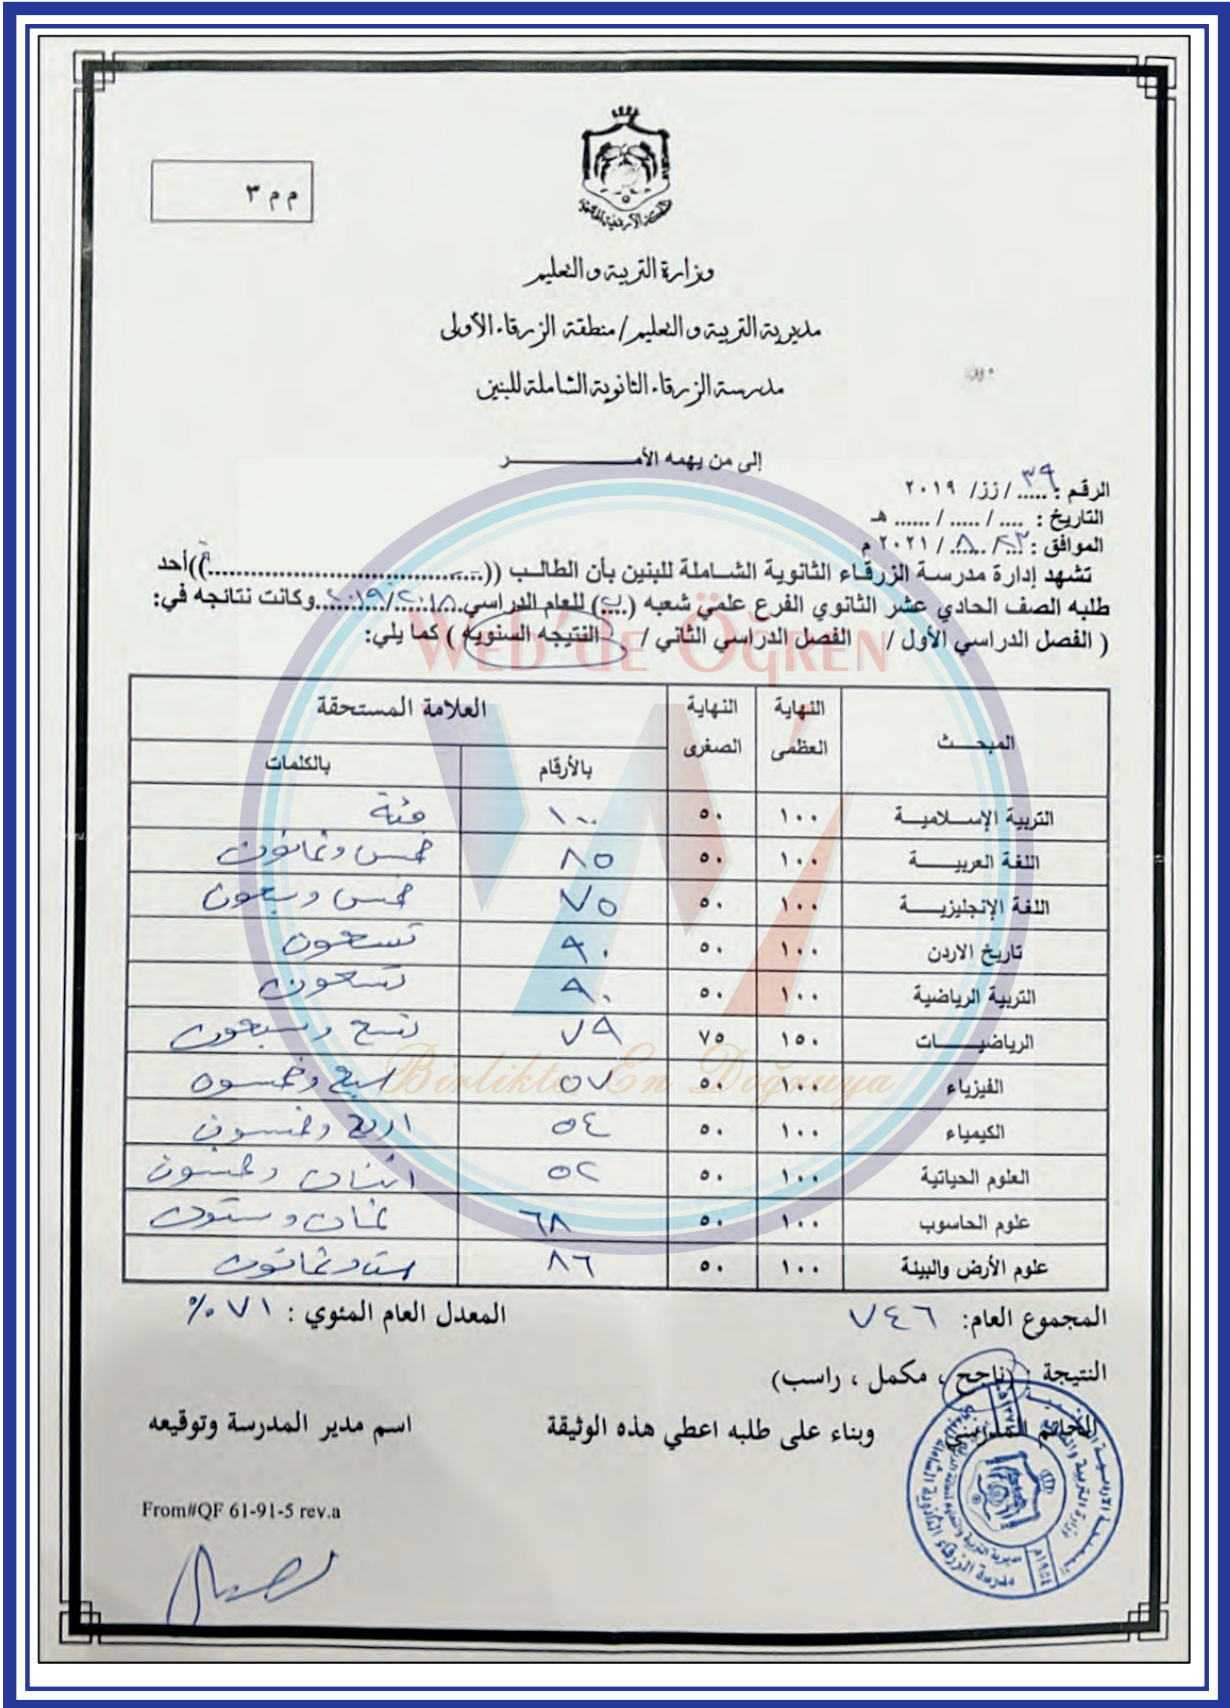 م م ٣
المملكة الأردنية الهاشمية
وزارة التربية والتعليم
مديرية التربية والتعليم/ منطقة الزرقاء الأولى
مدرسة الزرقاء الثانوية الشاملة للبنين
إلى من يهمه الأمـــــــــر
الرقم : ٣٩ / زز/ ٢٠١٩
التاريخ : .... / ..... / ...... هـ
الموافق : ٢٣ / ٨ / ٢٠٢١ م
تشهد إدارة مدرسة الزرقاء الثانوية الشاملة للبنين بأن الطالب ((......................................))أحد
طلبه الصف الحادي عشر الثانوي الفرع علمي شعبه (ب) للعام الدراسي ٢٠١٩/٢٠١٨ وكانت نتائجه في:
( الفصل الدراسي الأول / الفصل الدراسي الثاني / النتيجه السنويه ) كما يلي:
Web'de Öğren
المبحـــث النهاية العظمى النهاية الصغرى العلامة المستحقة
بالأرقام بالكلمات
التربية الإســـلاميـــة ١٠٠ ٥٠ ١٠٠ مئة
اللغة العربيـــــة ١٠٠ ٥٠ ٨٥ خمس وثمانون
اللغة الإنجليزيـــــة ١٠٠ ٥٠ ٧٥ خمس وسبعون
تاريخ الاردن ١٠٠ ٥٠ ٩٠ تسعون
التربية الرياضية ١٠٠ ٥٠ ٩٠ تسعون
الرياضيـــــات ١٥٠ ٧٥ ٧٩ تسع وسبعون
الفيزياء ١٠٠ ٥٠ ٥٧ سبع وخمسون
Birlikte En Doğruya
الكيمياء ١٠٠ ٥٠ ٥٤ اربع وخمسون
العلوم الحياتية ١٠٠ ٥٠ ٥٢ اثنان وخمسون
علوم الحاسوب ١٠٠ ٥٠ ٦٨ ثمان وستون
علوم الأرض والبيئة ١٠٠ ٥٠ ٨٦ ست وثمانون
المجموع العام: ٧٤٦ المعدل العام المئوي : ٧١ %
النتيجة : (ناجح ، مكمل ، راسب)
الخاتم المدرسي وبناء على طلبه اعطي هذه الوثيقة اسم مدير المدرسة وتوقيعه
وزارة التربية والتعليم
مدرسة الزرقاء الثانوية الشاملة
From#QF 61-91-5 rev.a